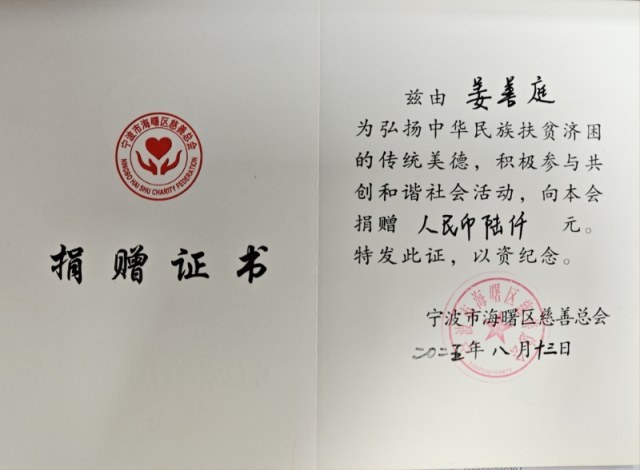 宁波市海曙区慈善总会
NINGBO HAI SHU CHARITY FEDERATION
捐赠证书
兹由 姜善庭
为弘扬中华民族扶贫济困
的传统美德，积极参与共
创和谐社会活动，向本会
捐赠 人民币陆仟 元。
特发此证，以资纪念。
宁波市海曙区慈善总会
宁波市海曙区慈善总会
二〇二五年八月十三日